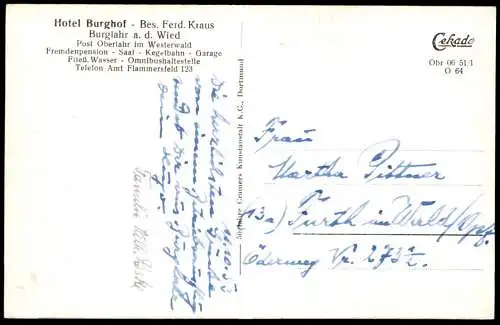 Hotel Burghof - Bes. Ferd. Kraus
Burglahr a. d. Wied
Post Oberlahr im Westerwald
Fremdenpension - Saal - Kegelbahn - Garage
Fließ. Wasser - Omnibushaltestelle
Telefon Amt Flammersfeld 123
Cekade
Obr 06 51/1
O 64
Schöning Cramers Kunstanstalt K.G., Dortmund
16.10.53
Die herzlichsten Grüße
von einem
sendet Dir aus Burglahr
dein
Familie
Frau
Martha Pittner
13a) Furth im Wald/Opf.
Öderweg Nr. 273½